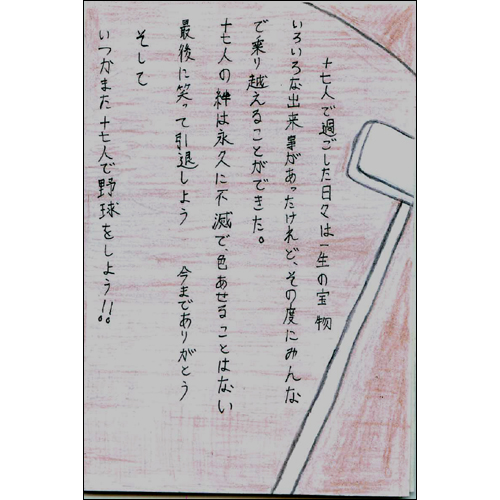 十七人で過ごした日々は一生の宝物
いろいろな出来事があったけれど、その度にみんな
で乗り越えることができた。
十七人の絆は永久に不滅で、色あせることはない
最後に笑って引退しよう　今までありがとう
そして
いつかまた十七人で野球をしよう!!